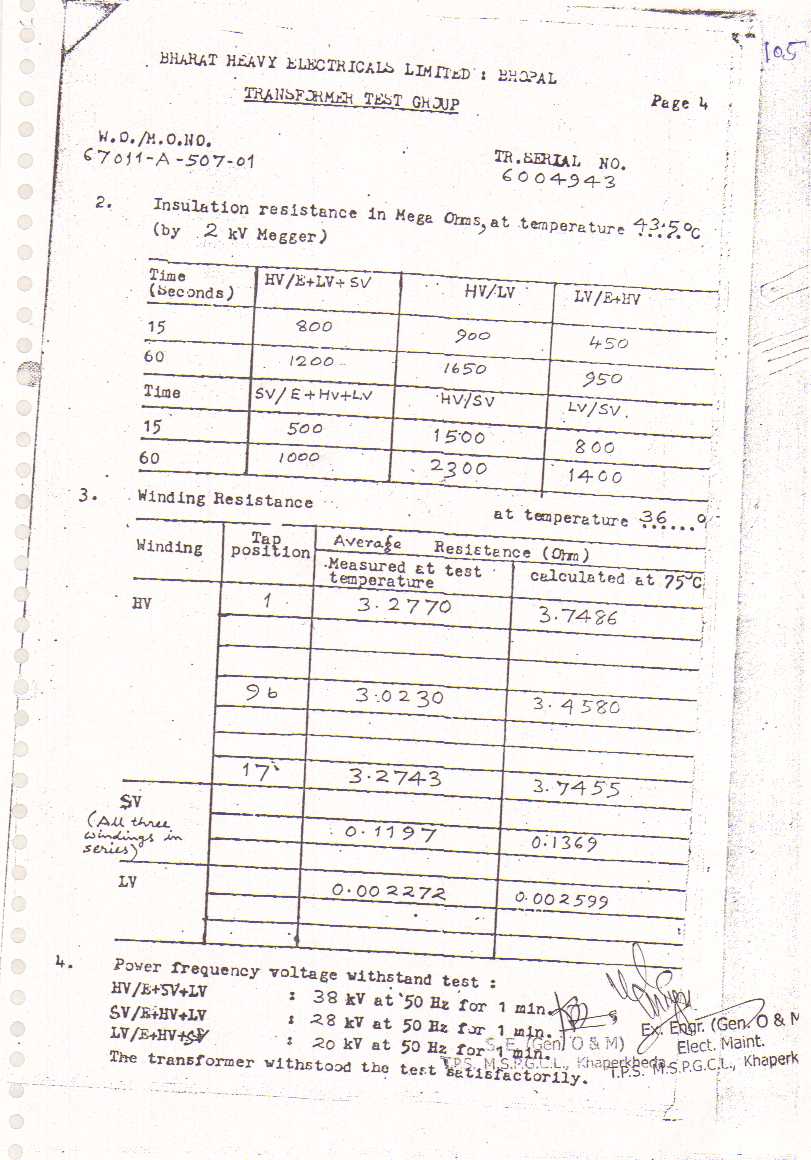 105
BHARAT HEAVY ELECTRICALS LIMITED : BHOPAL
TRANSFORMER TEST GROUP
Page 4
W.O./M.O.NO.
67011-A-507-01
TR.SERIAL NO.
6004943
2. Insulation resistance in Mega Ohms, at temperature 43.5°C
(by 2 kV Megger)
Time (Seconds) HV/E+LV+SV HV/LV LV/E+HV
15 800 900 450
60 1200 1650 950
Time SV/E+HV+LV HV/SV LV/SV.
15 500 1500 800
60 1000 2300 1400
3. Winding Resistance at temperature 36......°
Winding Tap position Average Resistance (Ohm)
Measured at test temperature calculated at 75°C
HV 1 3.2770 3.7486
9b 3.0230 3.4580
17 3.2743 3.7455
SV
(All three windings in series) 0.1197 0.1369
LV 0.002272 0.002599
4. Power frequency voltage withstand test :
HV/E+SV+LV : 38 kV at 50 Hz for 1 min.
SV/E+HV+LV : 28 kV at 50 Hz for 1 min.
LV/E+HV+SV : 20 kV at 50 Hz for 1 min.
The transformer withstood the test satisfactorily.
S. E. (Gen. O & M)
T.P.S. M.S.P.G.C.L., Khaperkheda
Ex. Engr. (Gen. O & M
Elect. Maint.
T.P.S. M.S.P.G.C.L., Khaperk